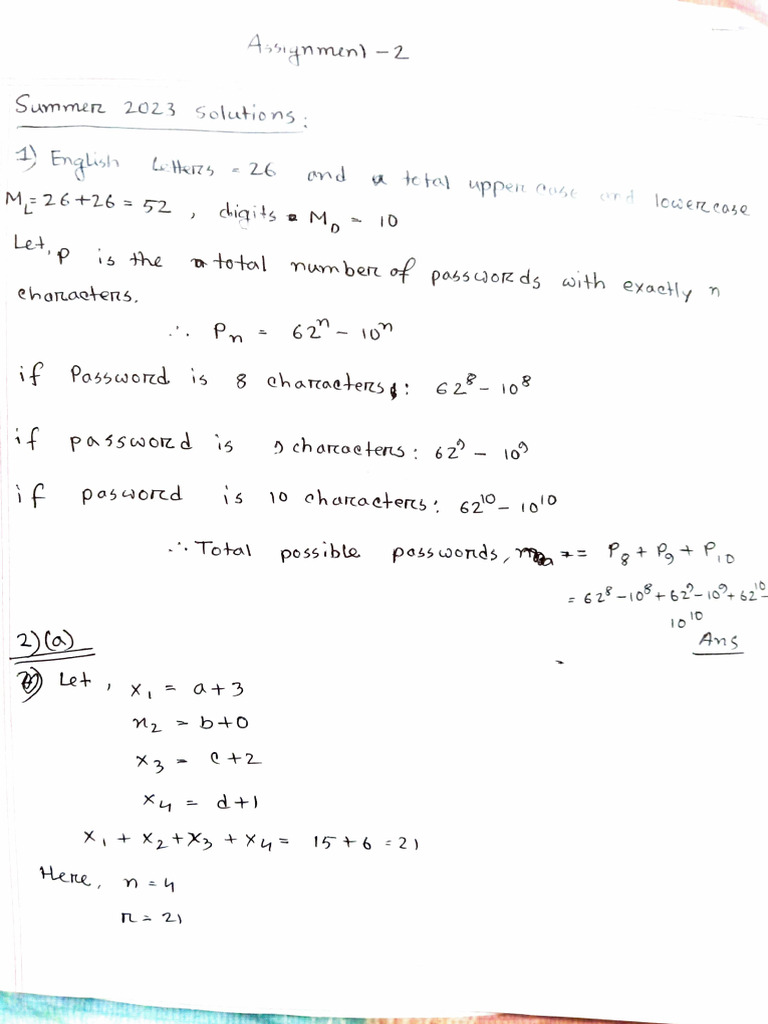 Assignment - 2
Summer 2023 solutions:
1) English letters = 26 and a total upper case and lowercase
M_L = 26 + 26 = 52 , digits M_D = 10
Let, P is the total number of passwords with exactly n
characters.
∴ P_n = 62^n - 10^n
if Password is 8 characters: 62^8 - 10^8
if password is 9 characters: 62^9 - 10^9
if pasword is 10 characters: 62^10 - 10^10
∴ Total possible passwords, = P_8 + P_9 + P_10
= 62^8 - 10^8 + 62^9 - 10^9 + 62^10 -
10^10
Ans
2)(a)
Let, x_1 = a+3
x_2 = b+0
x_3 = c+2
x_4 = d+1
x_1 + x_2 + x_3 + x_4 = 15 + 6 = 21
Here, n = 4
r = 21